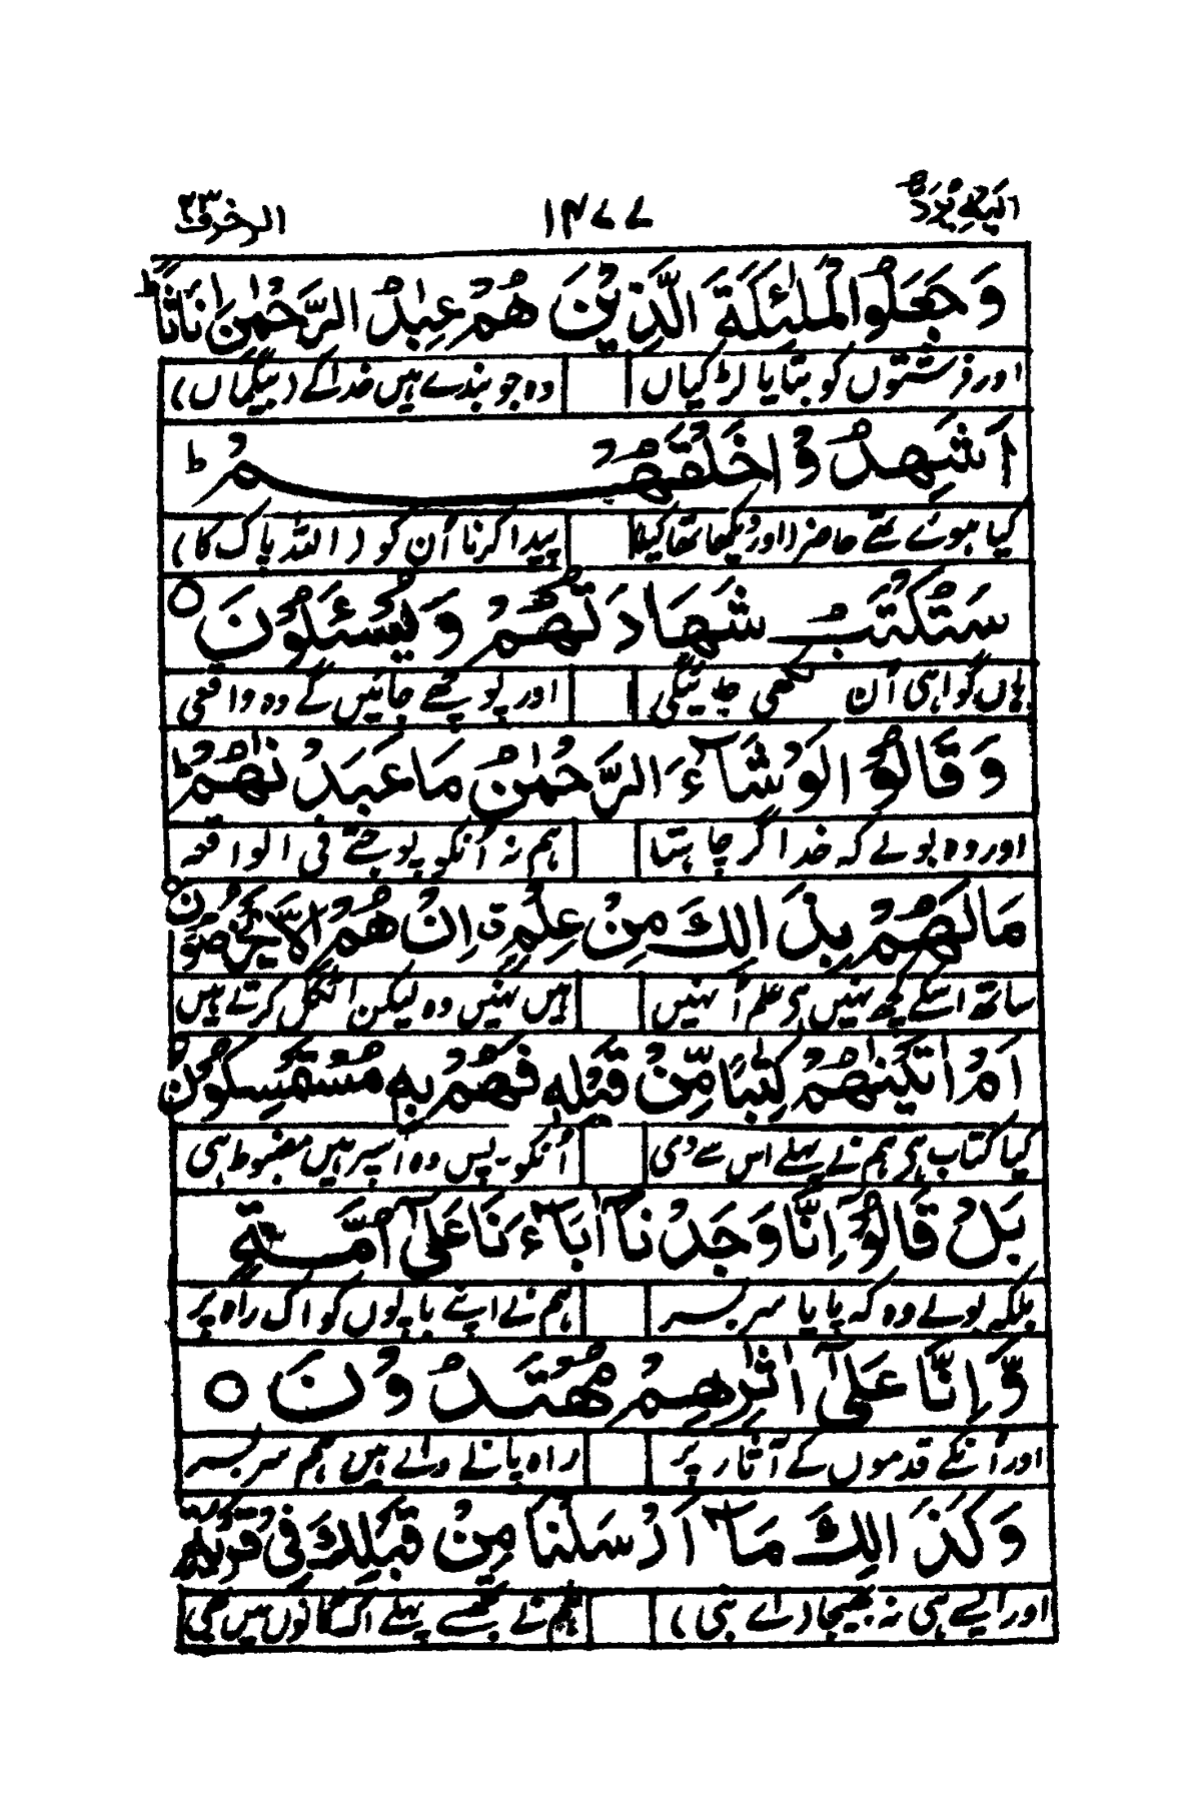 الیه یرد ۲۵ ۱۴۷۷ الزخرف ۴۳
وَجَعَلُوا الْمَلٰٓئِكَةَ الَّذِيْنَ هُمْ عِبٰدُ الرَّحْمٰنِ اِنَاثًا ؕ
اور فرشتوں کو بتایا لڑکیاں وہ جو بندے ہیں خدا کے (بیگماں)
اَشَهِدُوْا خَلْقَهُمْ ؕ
کیا ہوئے تھے حاضر (اور دیکھا تھا کیا) پیدا کرنا اُن کو (اللہ پاک کا)
سَتُكْتَبُ شَهَادَتُهُمْ وَيُسْئَلُوْنَ ○
ہاں گواہی اُن لکھی جائیگی اور پوچھے جائیں گے وہ واقعی
وَقَالُوْا لَوْ شَآءَ الرَّحْمٰنُ مَا عَبَدْنٰهُمْ ؕ
اور وہ بولے کہ خدا گر چاہتا ہم نہ اُنکو پوجتے فی الواقعہ
مَا لَهُمْ بِذٰلِكَ مِنْ عِلْمٍ ق اِنْ هُمْ اِلَّا يَخْرُصُوْنَ ○
ساتھ اسکے کچھ نہیں ہی علم اُنہیں ہیں نہیں وہ لیکن اٹکل کرتے ہیں
اَمْ اٰتَيْنٰهُمْ كِتٰبًا مِّنْ قَبْلِهٖ فَهُمْ بِهٖ مُسْتَمْسِكُوْنَ
کیا کتاب ہی ہم نے پہلے اس سے دی اُنکو۔ پس وہ اسپر ہیں مضبوط ہی
بَلْ قَالُوْٓا اِنَّا وَجَدْنَآ اٰبَآءَنَا عَلٰٓى اُمَّةٍ
بلکہ بولے وہ کہ پایا سربسر ہم نے اپنے باپوں کو اک راہ پر
وَّاِنَّا عَلٰٓى اٰثٰرِهِمْ مُّهْتَدُوْنَ ○
اور اُنکے قدموں کے آثار پر راہ پانے والے ہیں ہم سربسر
وَكَذٰلِكَ مَآ اَرْسَلْنَا مِنْ قَبْلِكَ فِىْ قَرْيَةٍ
اور ایسے ہی نہ بھیجا (اے نبی) ہم نے تجھسے پہلے اک گانوں میں بھی